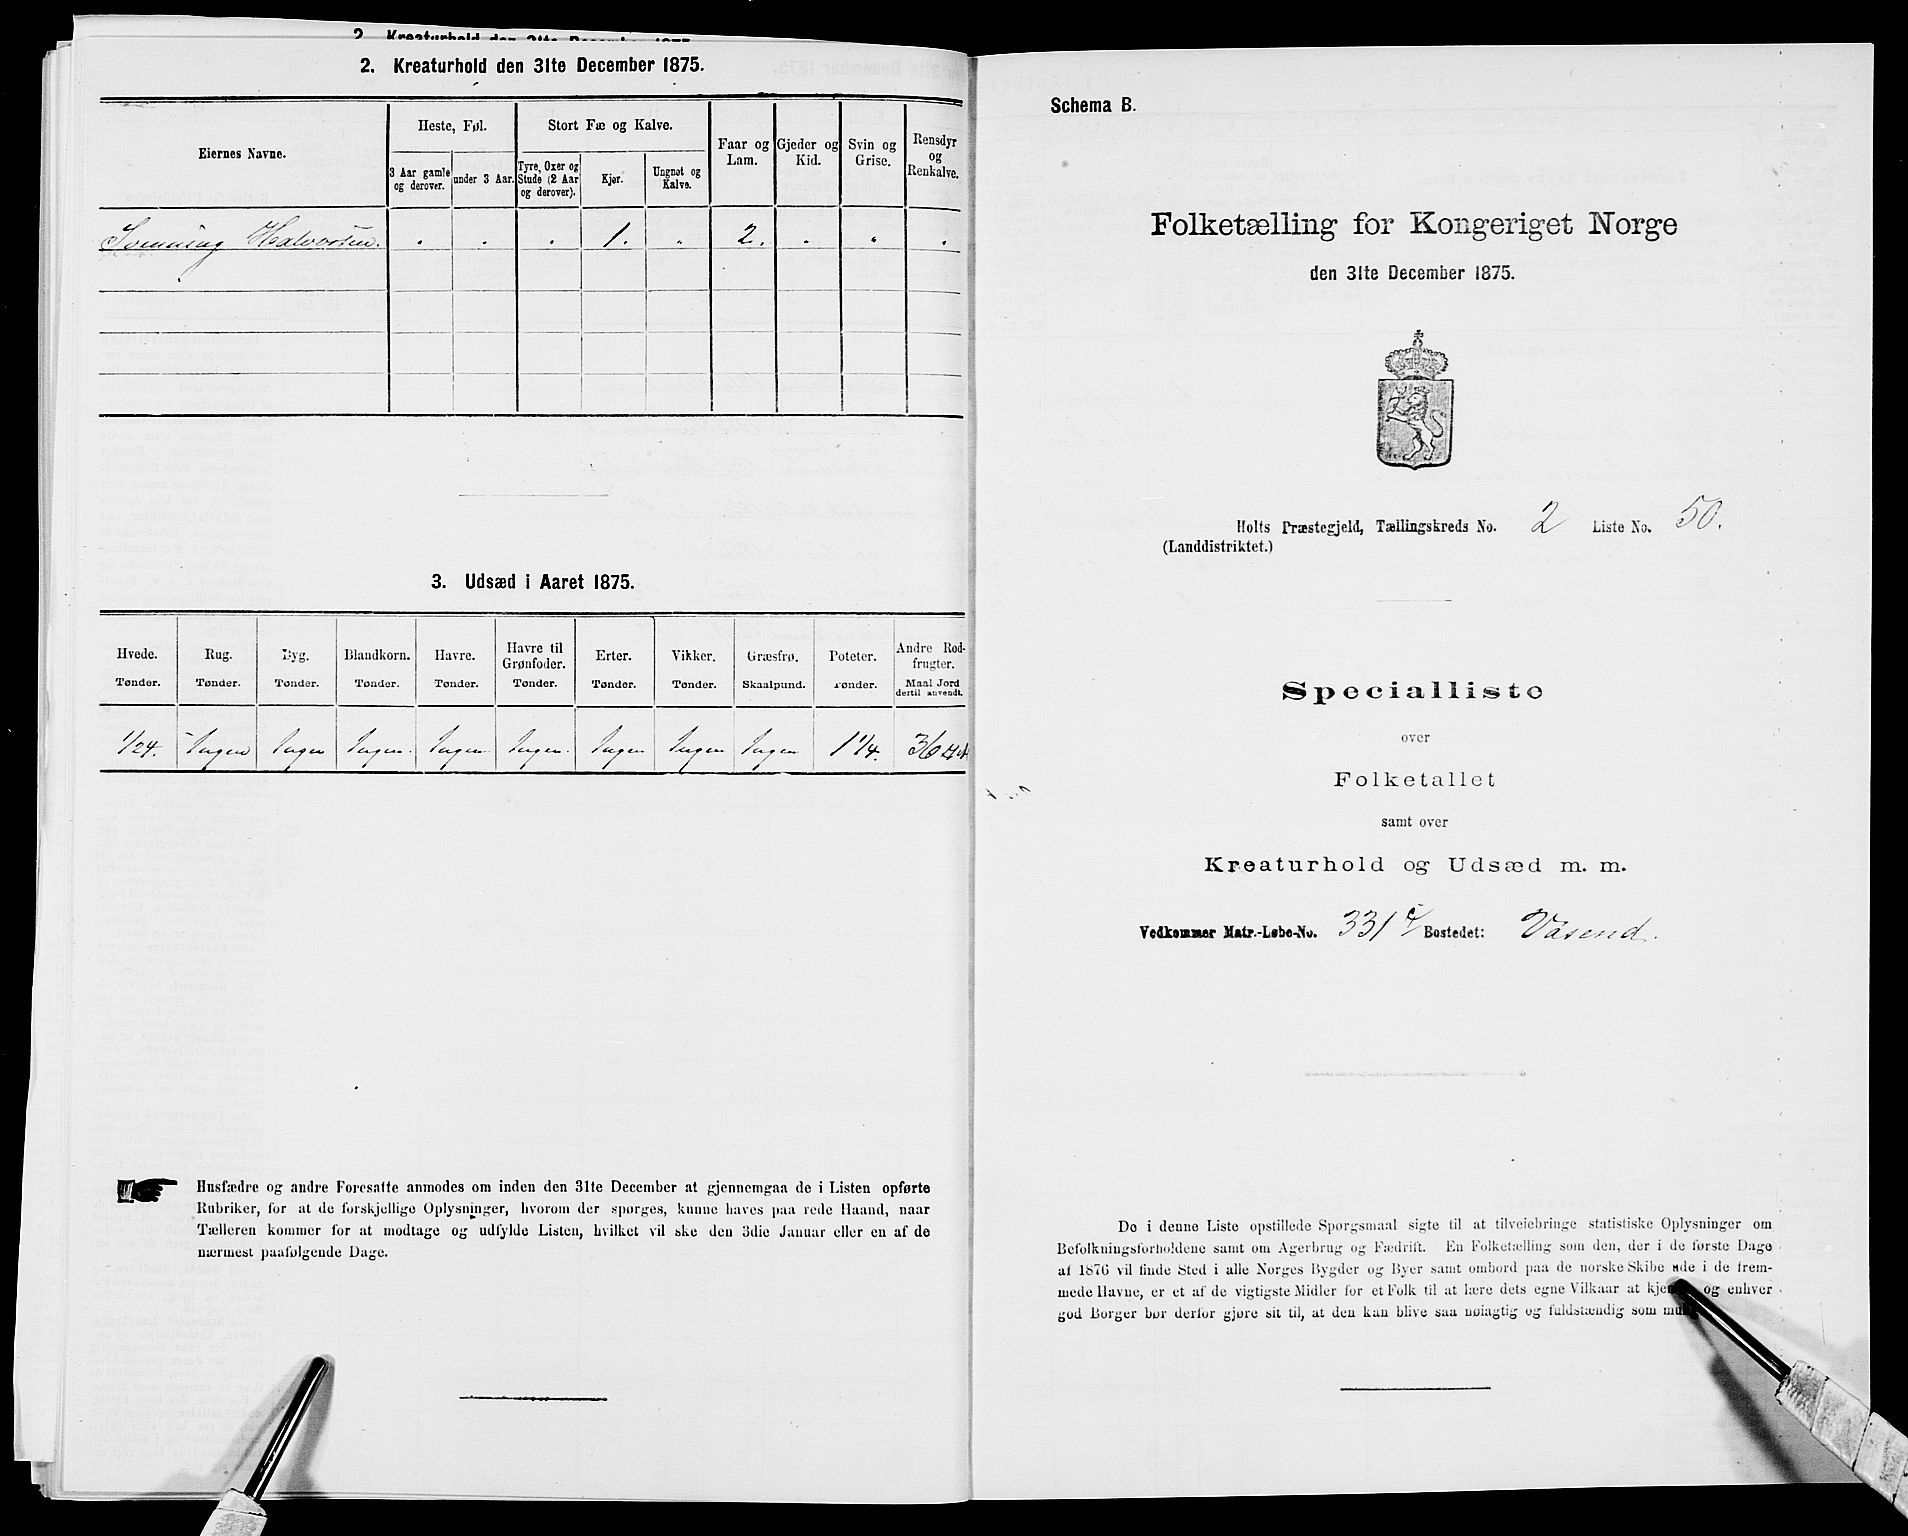 2. Kreaturhold den 31te December 1875.
Eiernes Navne.
Heste, Føl.
Stort Fæ og Kalve.
Faar og Lam.
Gjeder og Kid.
Svin og Grise.
Rensdyr og Renkalve.
3 Aar gamle og derover.
under 3 Aar.
Tyre, Oxer og Stude (2 Aar og derover).
Kjør.
Ungnøt og Kalve.
Svenning Halvorsen. " " " 1. " 2. " " "
3. Udsæd i Aaret 1875.
Hvede. Rug. Byg. Blandkorn. Havre. Havre til Grønfoder. Erter. Vikker. Græsfrø. Poteter. Andre Rodfrugter.
Tønder. Tønder. Tønder. Tønder. Tønder. Tønder. Tønder. Tønder. Skaalpund. Tønder. Maal Jord dertil anvendt.
1/24. Ingen Ingen Ingen. Ingen Ingen. Ingen Ingen Ingen 1 1/4. 36
Husfædre og andre Foresatte anmodes om inden den 31te December at gjennemgaa de i Listen opførte
Rubriker, for at de forskjellige Oplysninger, hvorom der spørges, kunne haves paa rede Haand, naar
Tælleren kommer for at modtage og udfylde Listen, hvilket vil ske den 3die Januar eller en af de
nærmest paafølgende Dage.
Schema B.
Folketælling for Kongeriget Norge
den 31te December 1875.
Holts Præstegjeld, Tællingskreds No. 2 Liste No. 50.
(Landdistriktet.)
Specialliste
over
Folketallet
samt over
Kreaturhold og Udsæd m. m.
Vedkommer Matr.-Løbe-No. 331 c/ Bostedet: Våsend.
De i denne Liste opstillede Spørgsmaal sigte til at tilveiebringe statistiske Oplysninger om
Befolkningsforholdene samt om Agerbrug og Fædrift. En Folketælling som den, der i de første Dage
af 1876 vil finde Sted i alle Norges Bygder og Byer samt ombord paa de norske Skibe ude i de frem-
mede Havne, er et af de vigtigste Midler for et Folk til at lære dets egne Vilkaar at og enhver
god Borger bør derfor gjøre sit til, at den kan blive saa nøiagtig og fuldstændig som